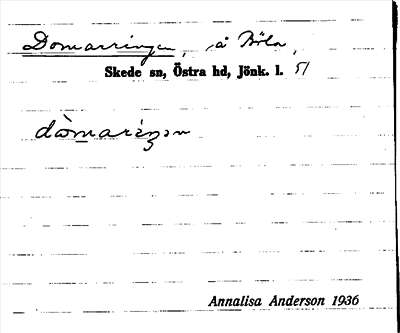 Domarringen, å Böla,
Skede sn, Östra hd, Jönk. l. 51
Annalisa Anderson 1936